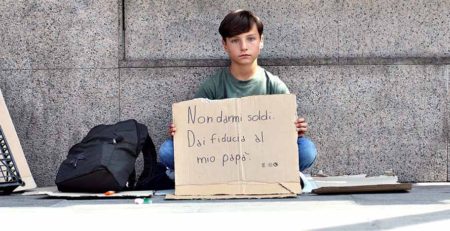 Non darmi soldi.
Dai fiducia al
mio papà.